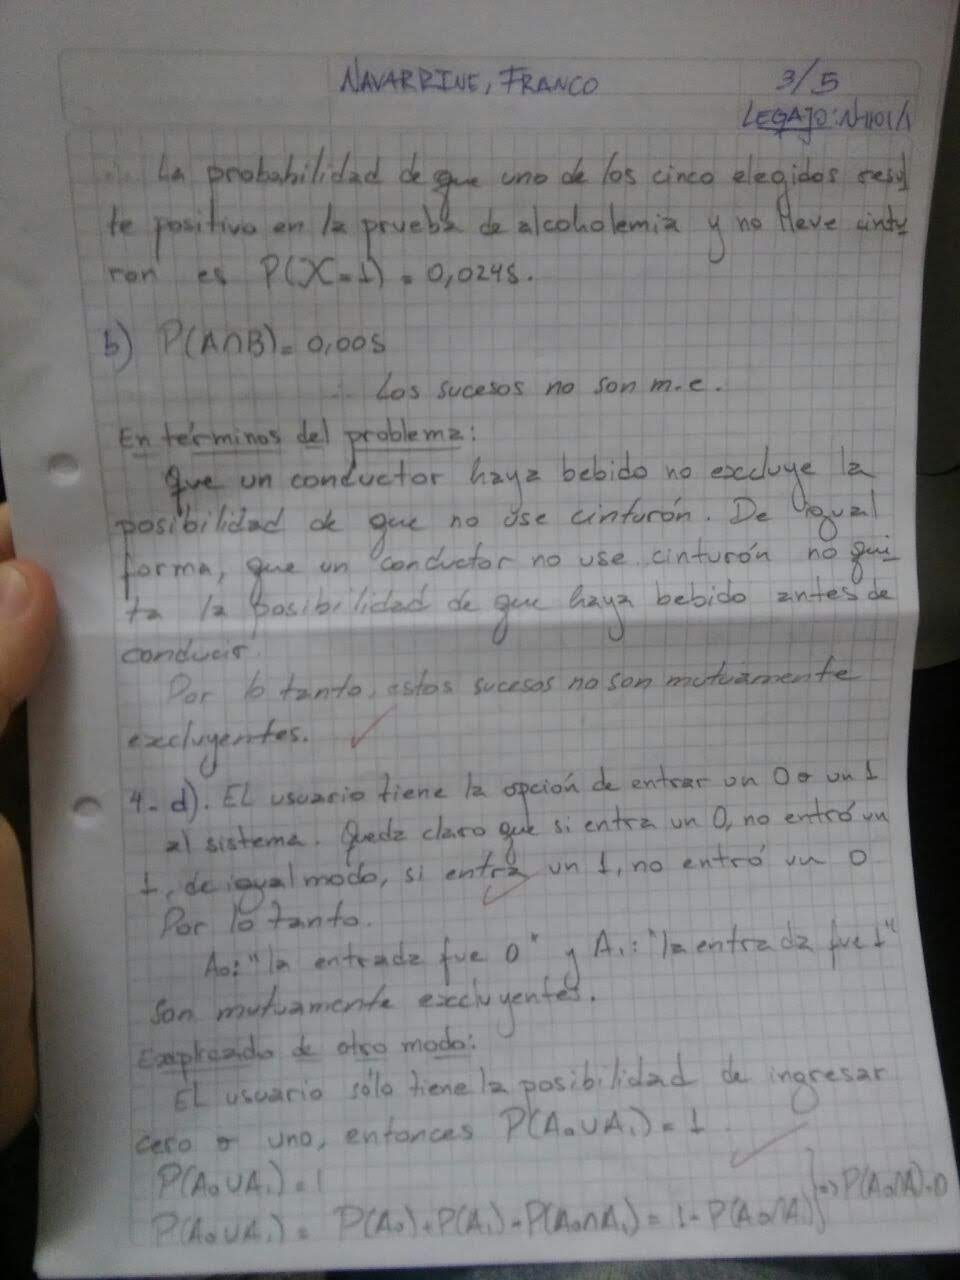 NAVARRINE, FRANCO
3/5
LEGAJO:
∴ La probabilidad de que uno de los cinco elegidos resul
te positivo en la prueba de alcoholemia y no lleve cintu
ron es P(X=1) = 0,0245.
b) P(A∩B) = 0,005
∴ Los sucesos no son m.e.
En términos del problema:
Que un conductor haya bebido no excluye la
posibilidad de que no use cinturón. De igual
forma, que un conductor no use cinturón no qui-
ta la posibilidad de que haya bebido antes de
conducir.
Por lo tanto, estos sucesos no son mutuamente
excluyentes.
4- d). El usuario tiene la opción de entrar un 0 o un 1
al sistema. Queda claro que si entra un 0, no entró un
1, de igual modo, si entra un 1, no entró un 0
Por lo tanto.
A₀: "la entrada fue 0" y A₁: "la entrada fue 1"
Son mutuamente excluyentes.
Explicado de otro modo:
El usuario sólo tiene la posibilidad de ingresar
cero o uno, entonces P(A₀∪A₁) = 1.
P(A₀∪A₁) = 1
P(A₀∪A₁) = P(A₀) + P(A₁) - P(A₀∩A₁) = 1 - P(A₀∩A₁) } => P(A₀∩A₁) = 0